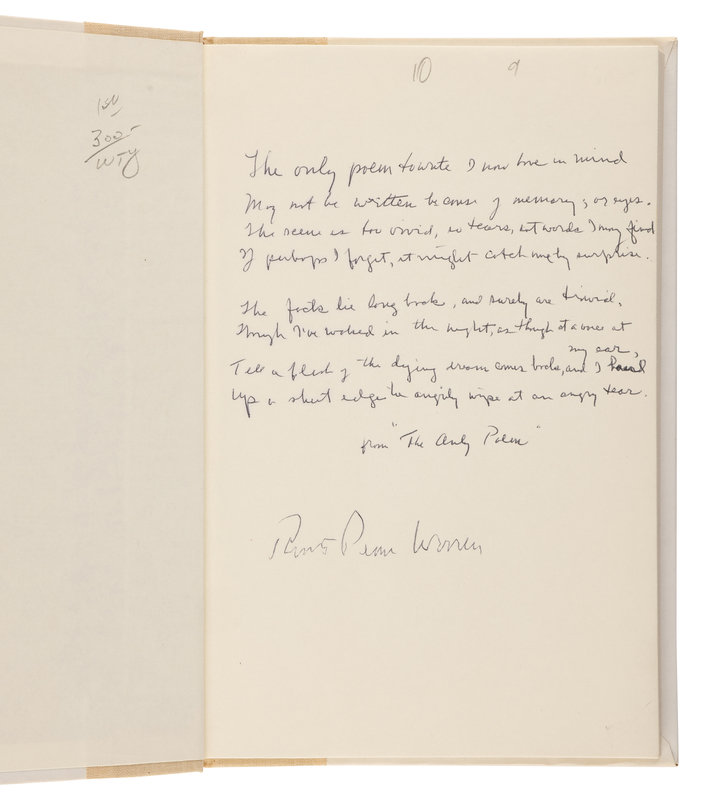 1st
300-
WTY
10 9
The only poem to write I now have in mind
May not be written because of memory, or eyes.
The scene is too vivid, so tears, not words I may find
If perhaps I forget, it might catch me by surprise.
The facts lie long back, and surely are trivial,
Though I've waked in the night, as though at a voice at
my ear,
Till a flash of the dying dream comes back, and I haul
Up a sheet edge to angrily wipe at an angry tear.
from "The Only Poem"
Robert Penn Warren